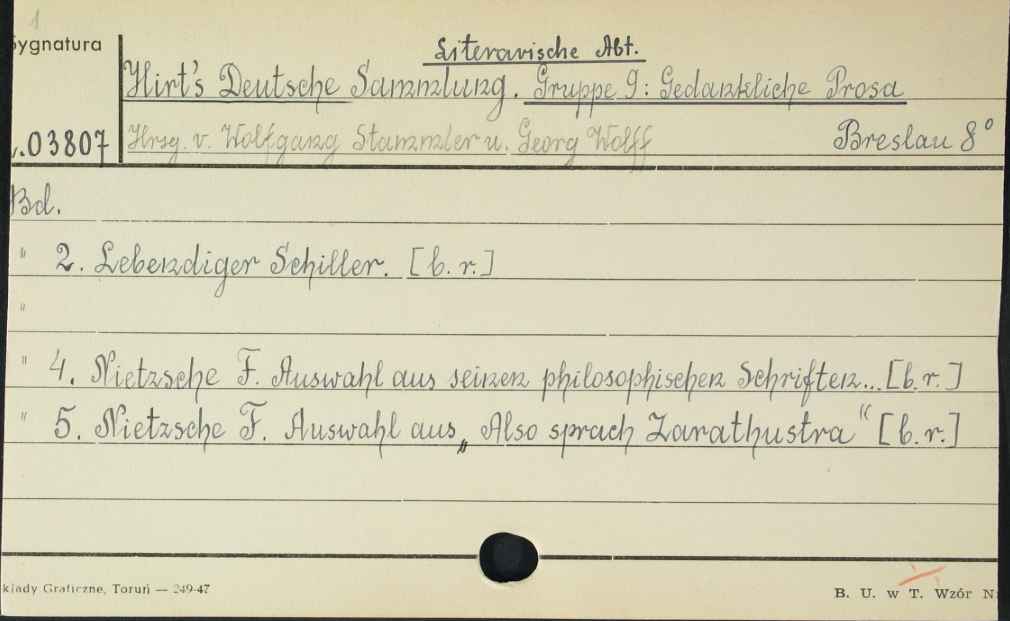 1
Sygnatura
Literarische Abt.
Hirt's Deutsche Sammlung. Gruppe 9: Gedankliche Prosa
.03807 Hrsg. v. Wolfgang Stammler u. Georg Wolff Breslau 8°
Bd.
" 2. Lebendiger Schiller. [b.r.]
"
" 4. Nietzsche F. Auswahl aus seinen philosophischen Schriften... [b.r.]
" 5. Nietzsche F. Auswahl aus „Also sprach Zarathustra“ [b.r.]
kłady Graficzne, Toruń — 249-47
B. U. w T. Wzór N